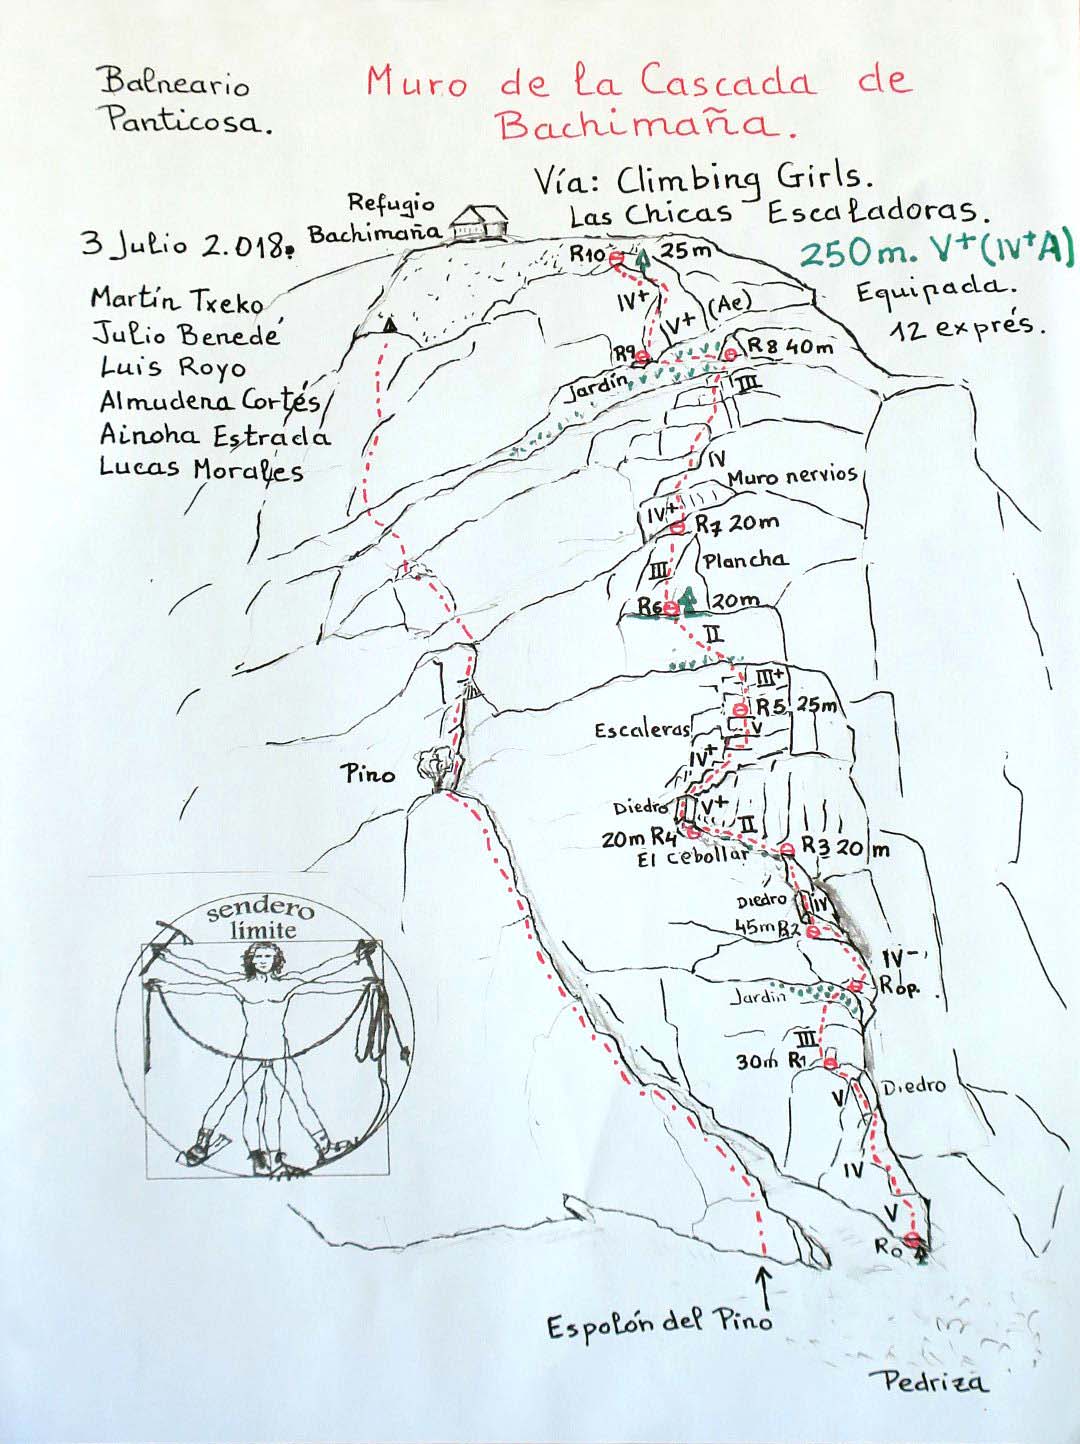 Balneario
Panticosa.
Muro de la Cascada de
Bachimaña.
Vía: Climbing Girls.
Las Chicas Escaladoras.
250m. V+(IV+A)
Equipada.
12 exprés.
3 Julio 2.018.
Martín Txeko,
Julio Benedé
Luis Royo
Almudena Cortés
Ainoha Estrada
Lucas Morales
Refugio
Bachimaña
R10 25m
IV+
V+ (Ae)
R9
R8 40m
Jardín
III
IV
Muro nervios
IV+
R7 20m
Plancha
III
R6 20m
II
III+
R5 25m
Escaleras
V
IV+
Pino
Diedro V+
II
20m R4
R3 20m
El cebollar
Diedro IV
45m R2
IV-
Rop.
Jardin
III
30m R1
V
Diedro
IV
V
R0
Espolón del Pino
Pedriza
sendero
límite